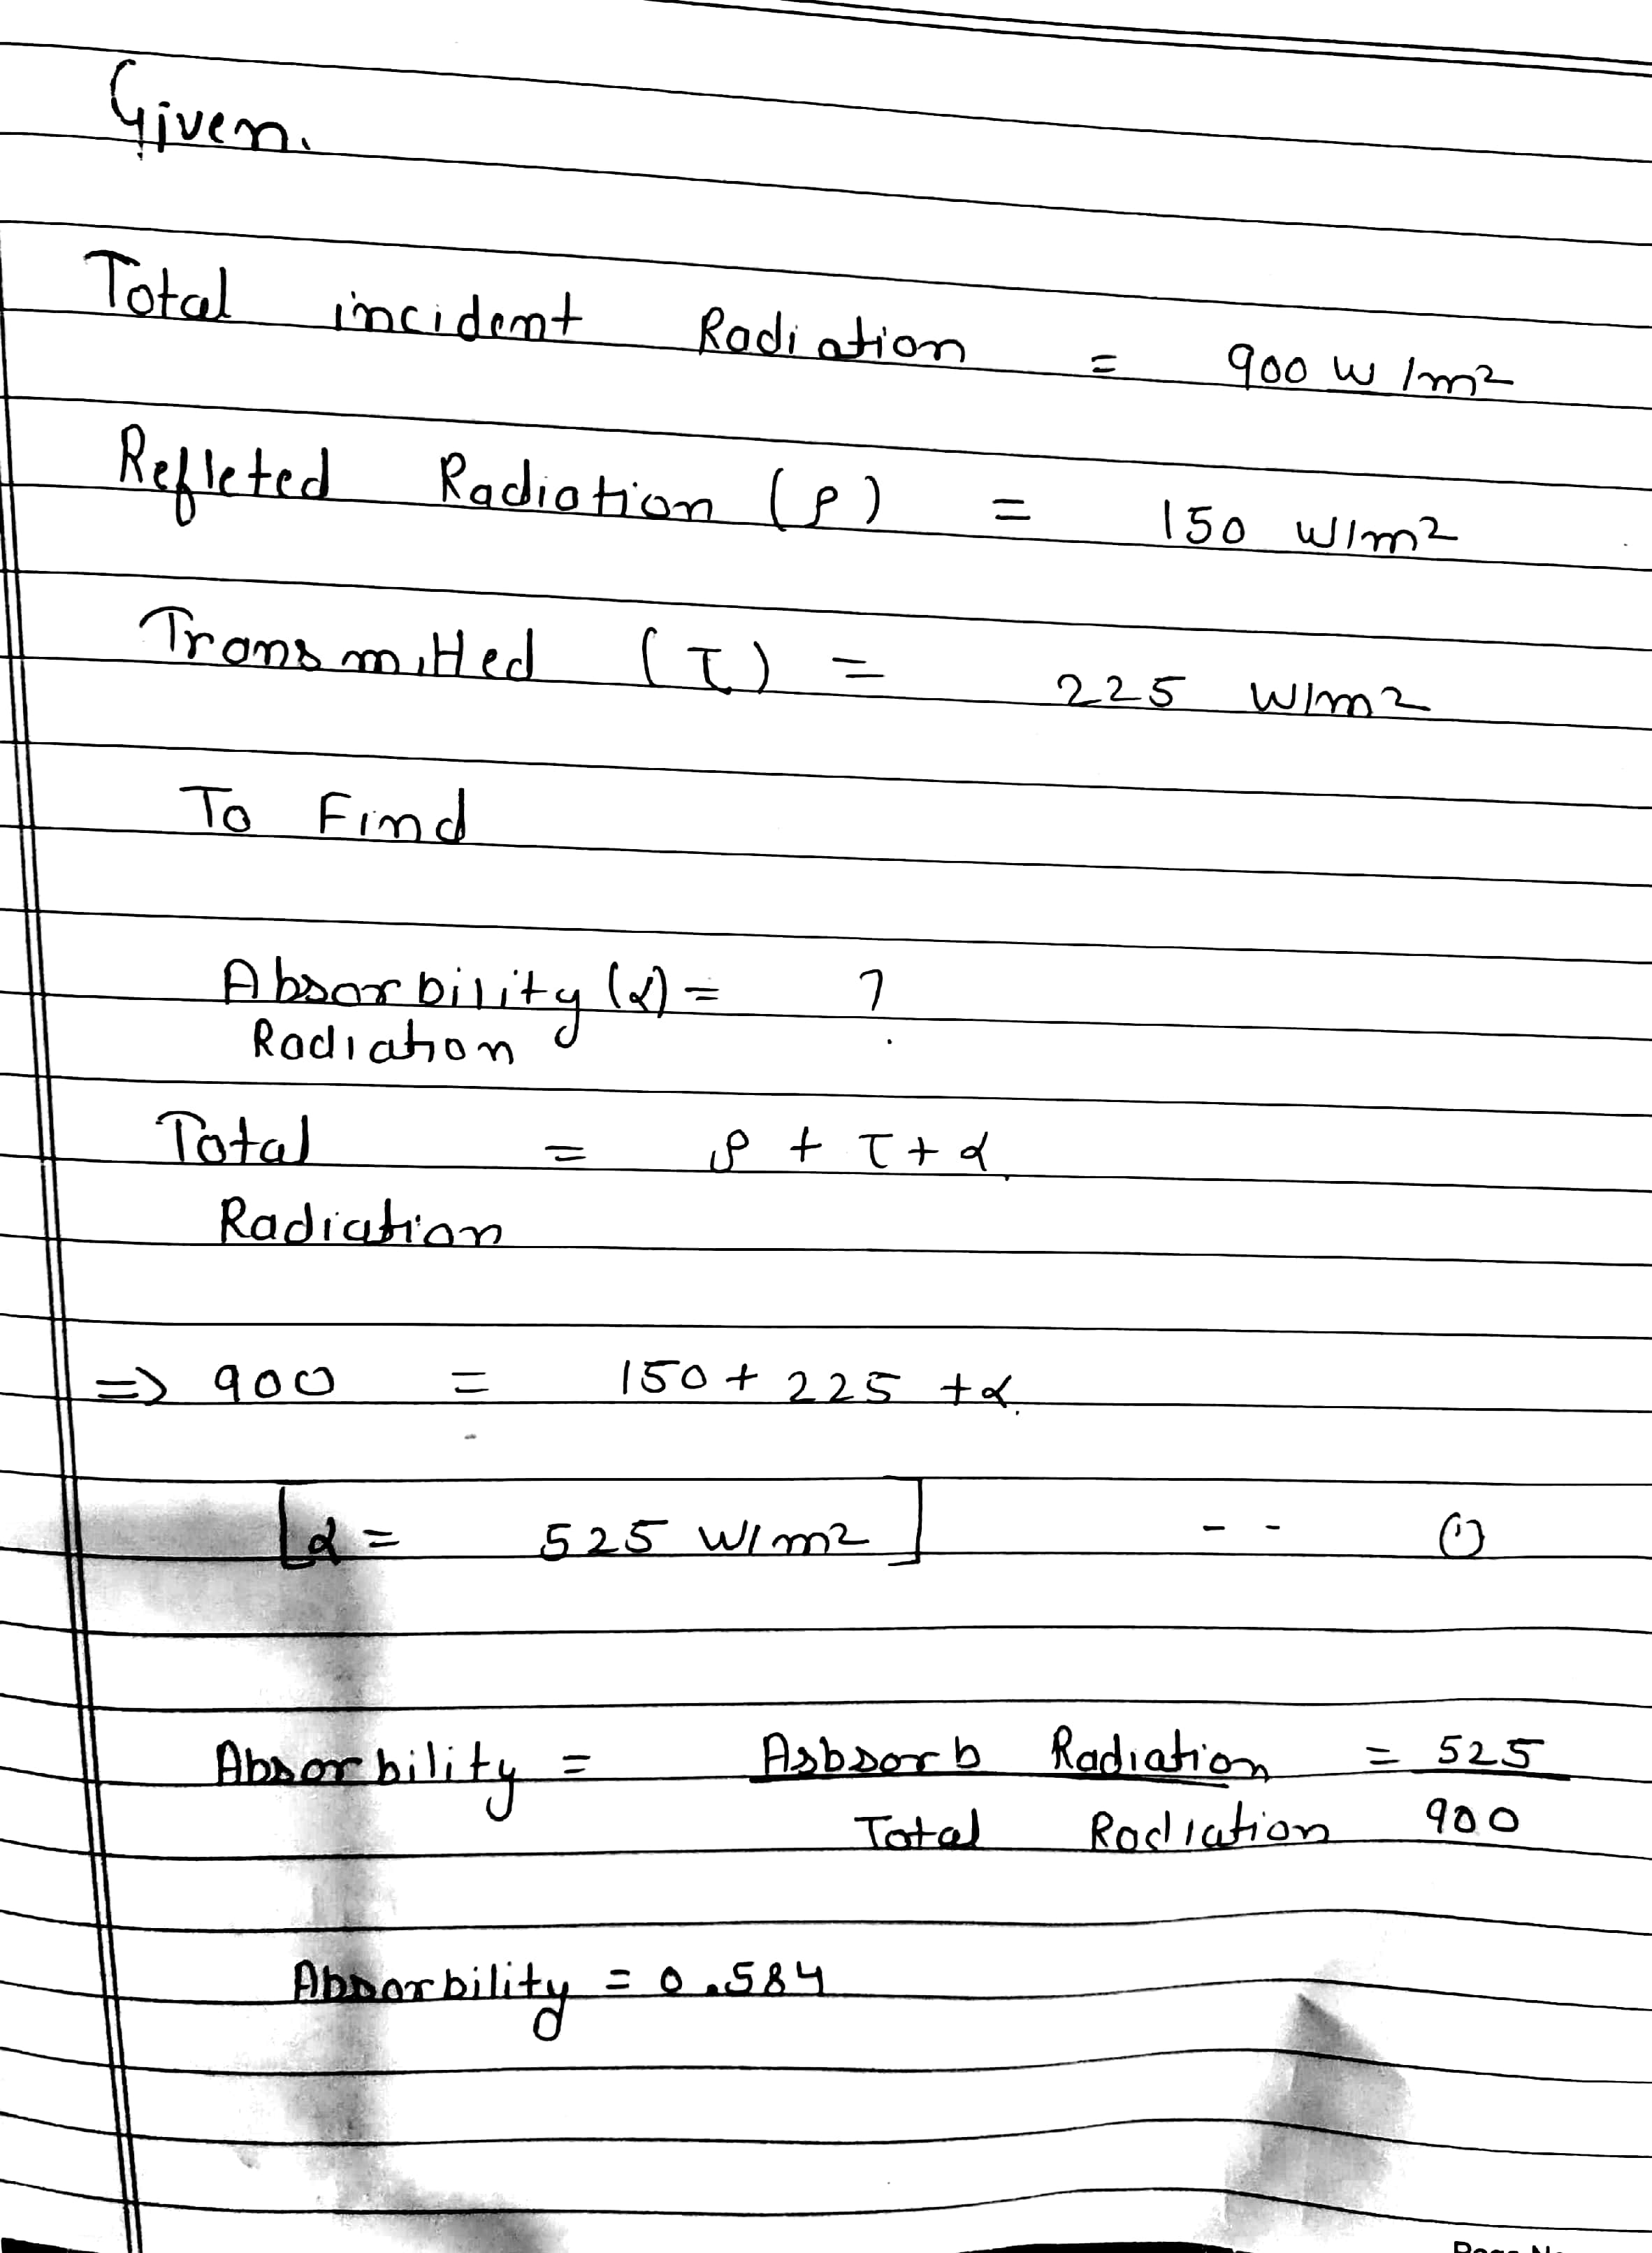 Given.
Total incident Radiation = 900 W/m²
Refleted Radiation (ρ) = 150 W/m²
Transmitted (τ) = 225 W/m²
To Find
Absorbility (α) = ?
Radiation
Total = ρ + τ + α
Radiation
=> 900 = 150 + 225 + α.
[α = 525 W/m²] - - (1)
Absorbility = Asbsorb Radiation = 525
Total Radiation 900
Absorbility = 0.584